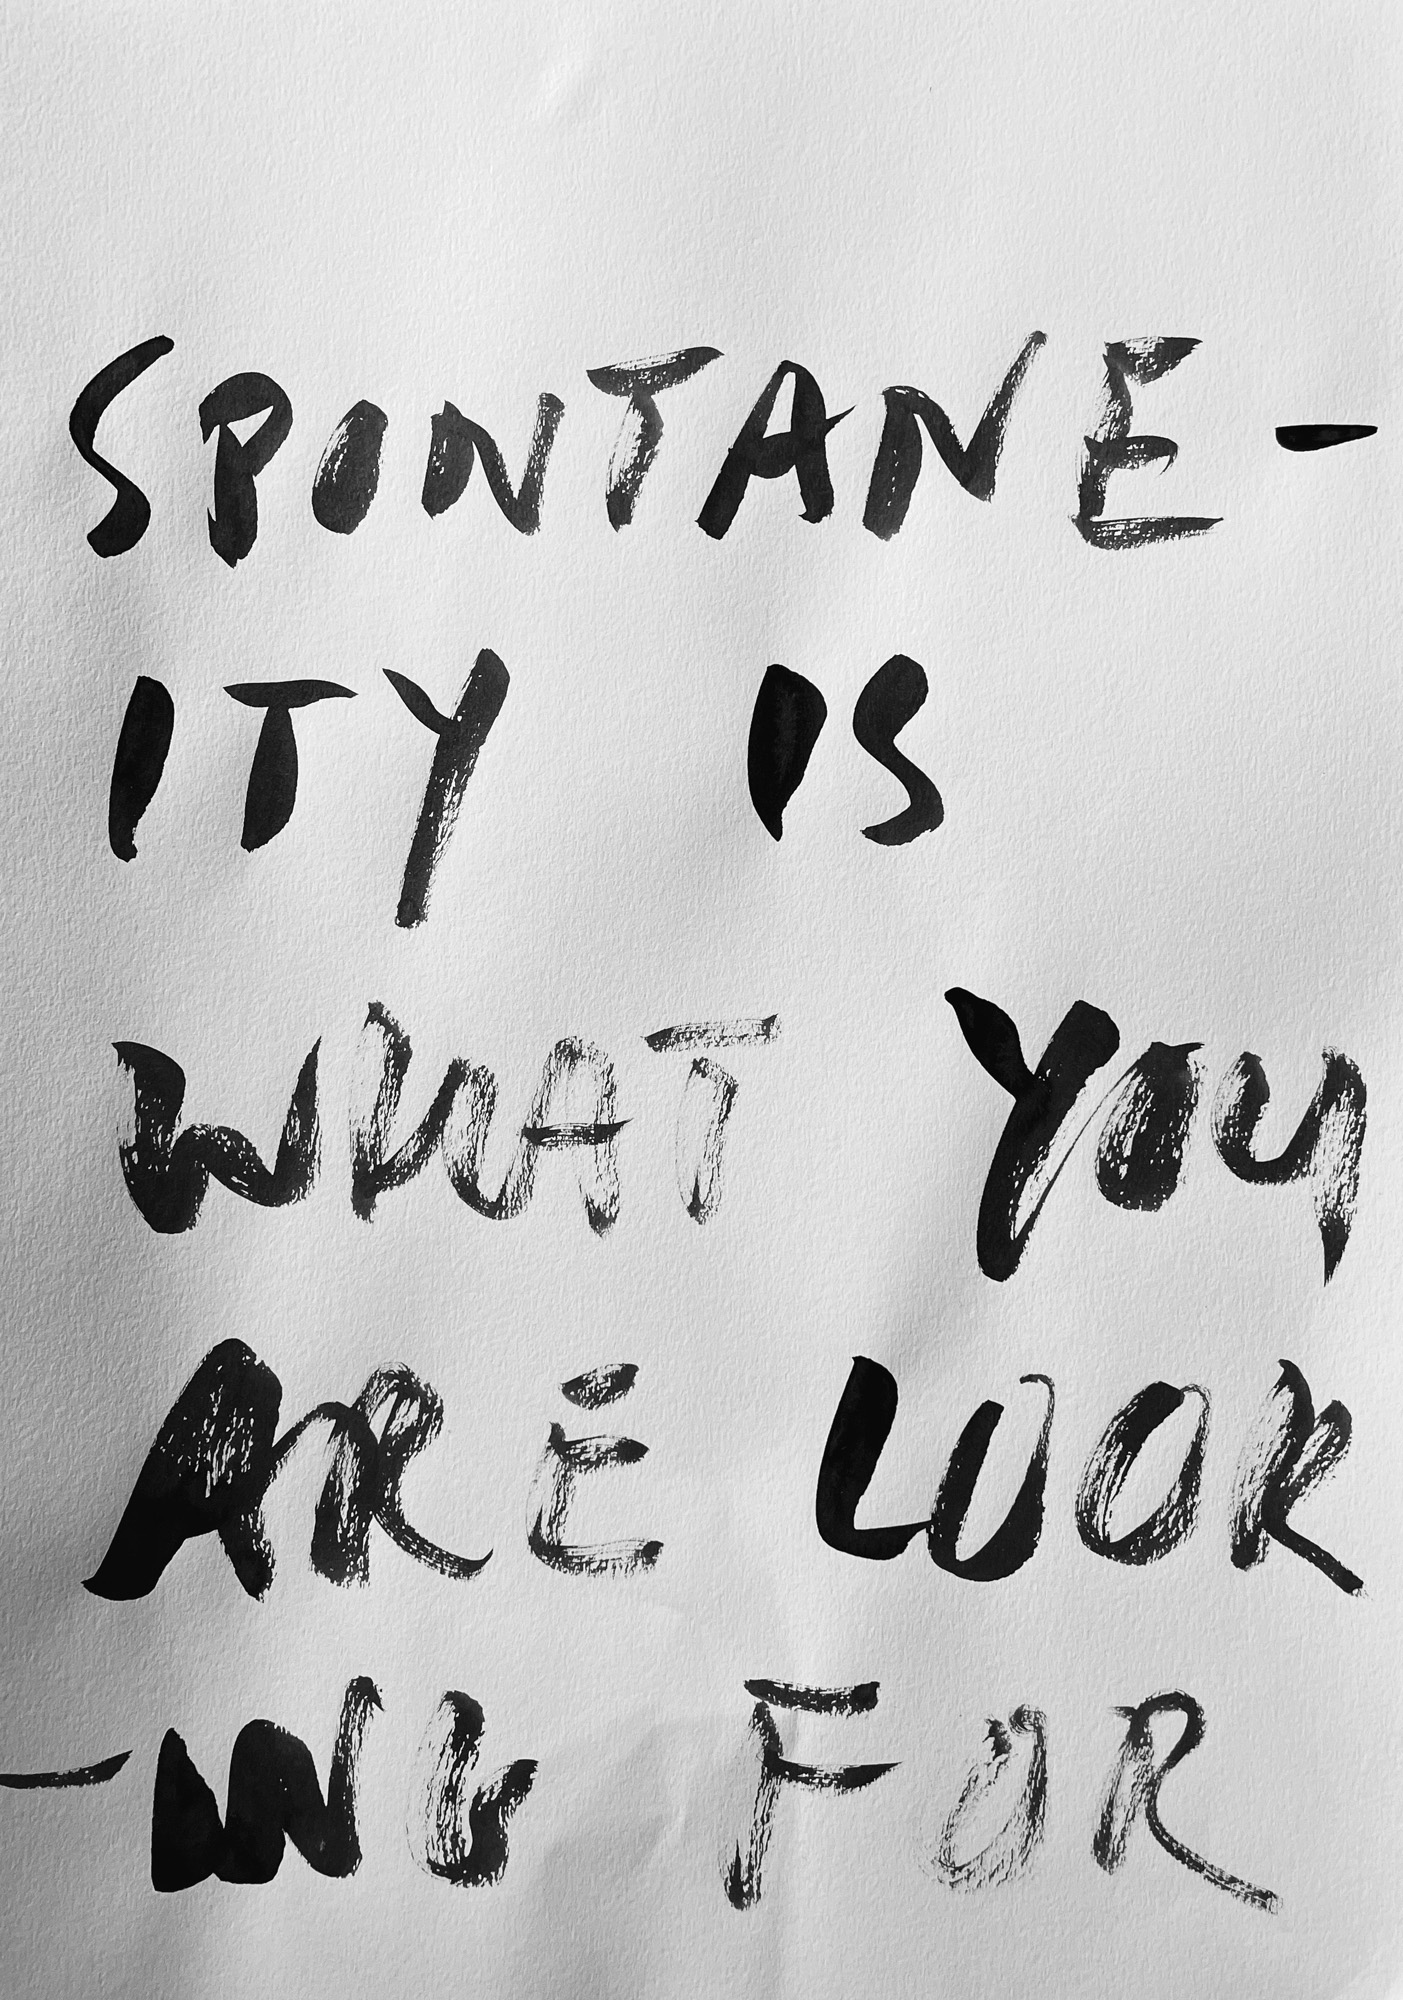 SPONTANE-
ITY IS
WHAT YOU
ARE LOOK
-ING FOR